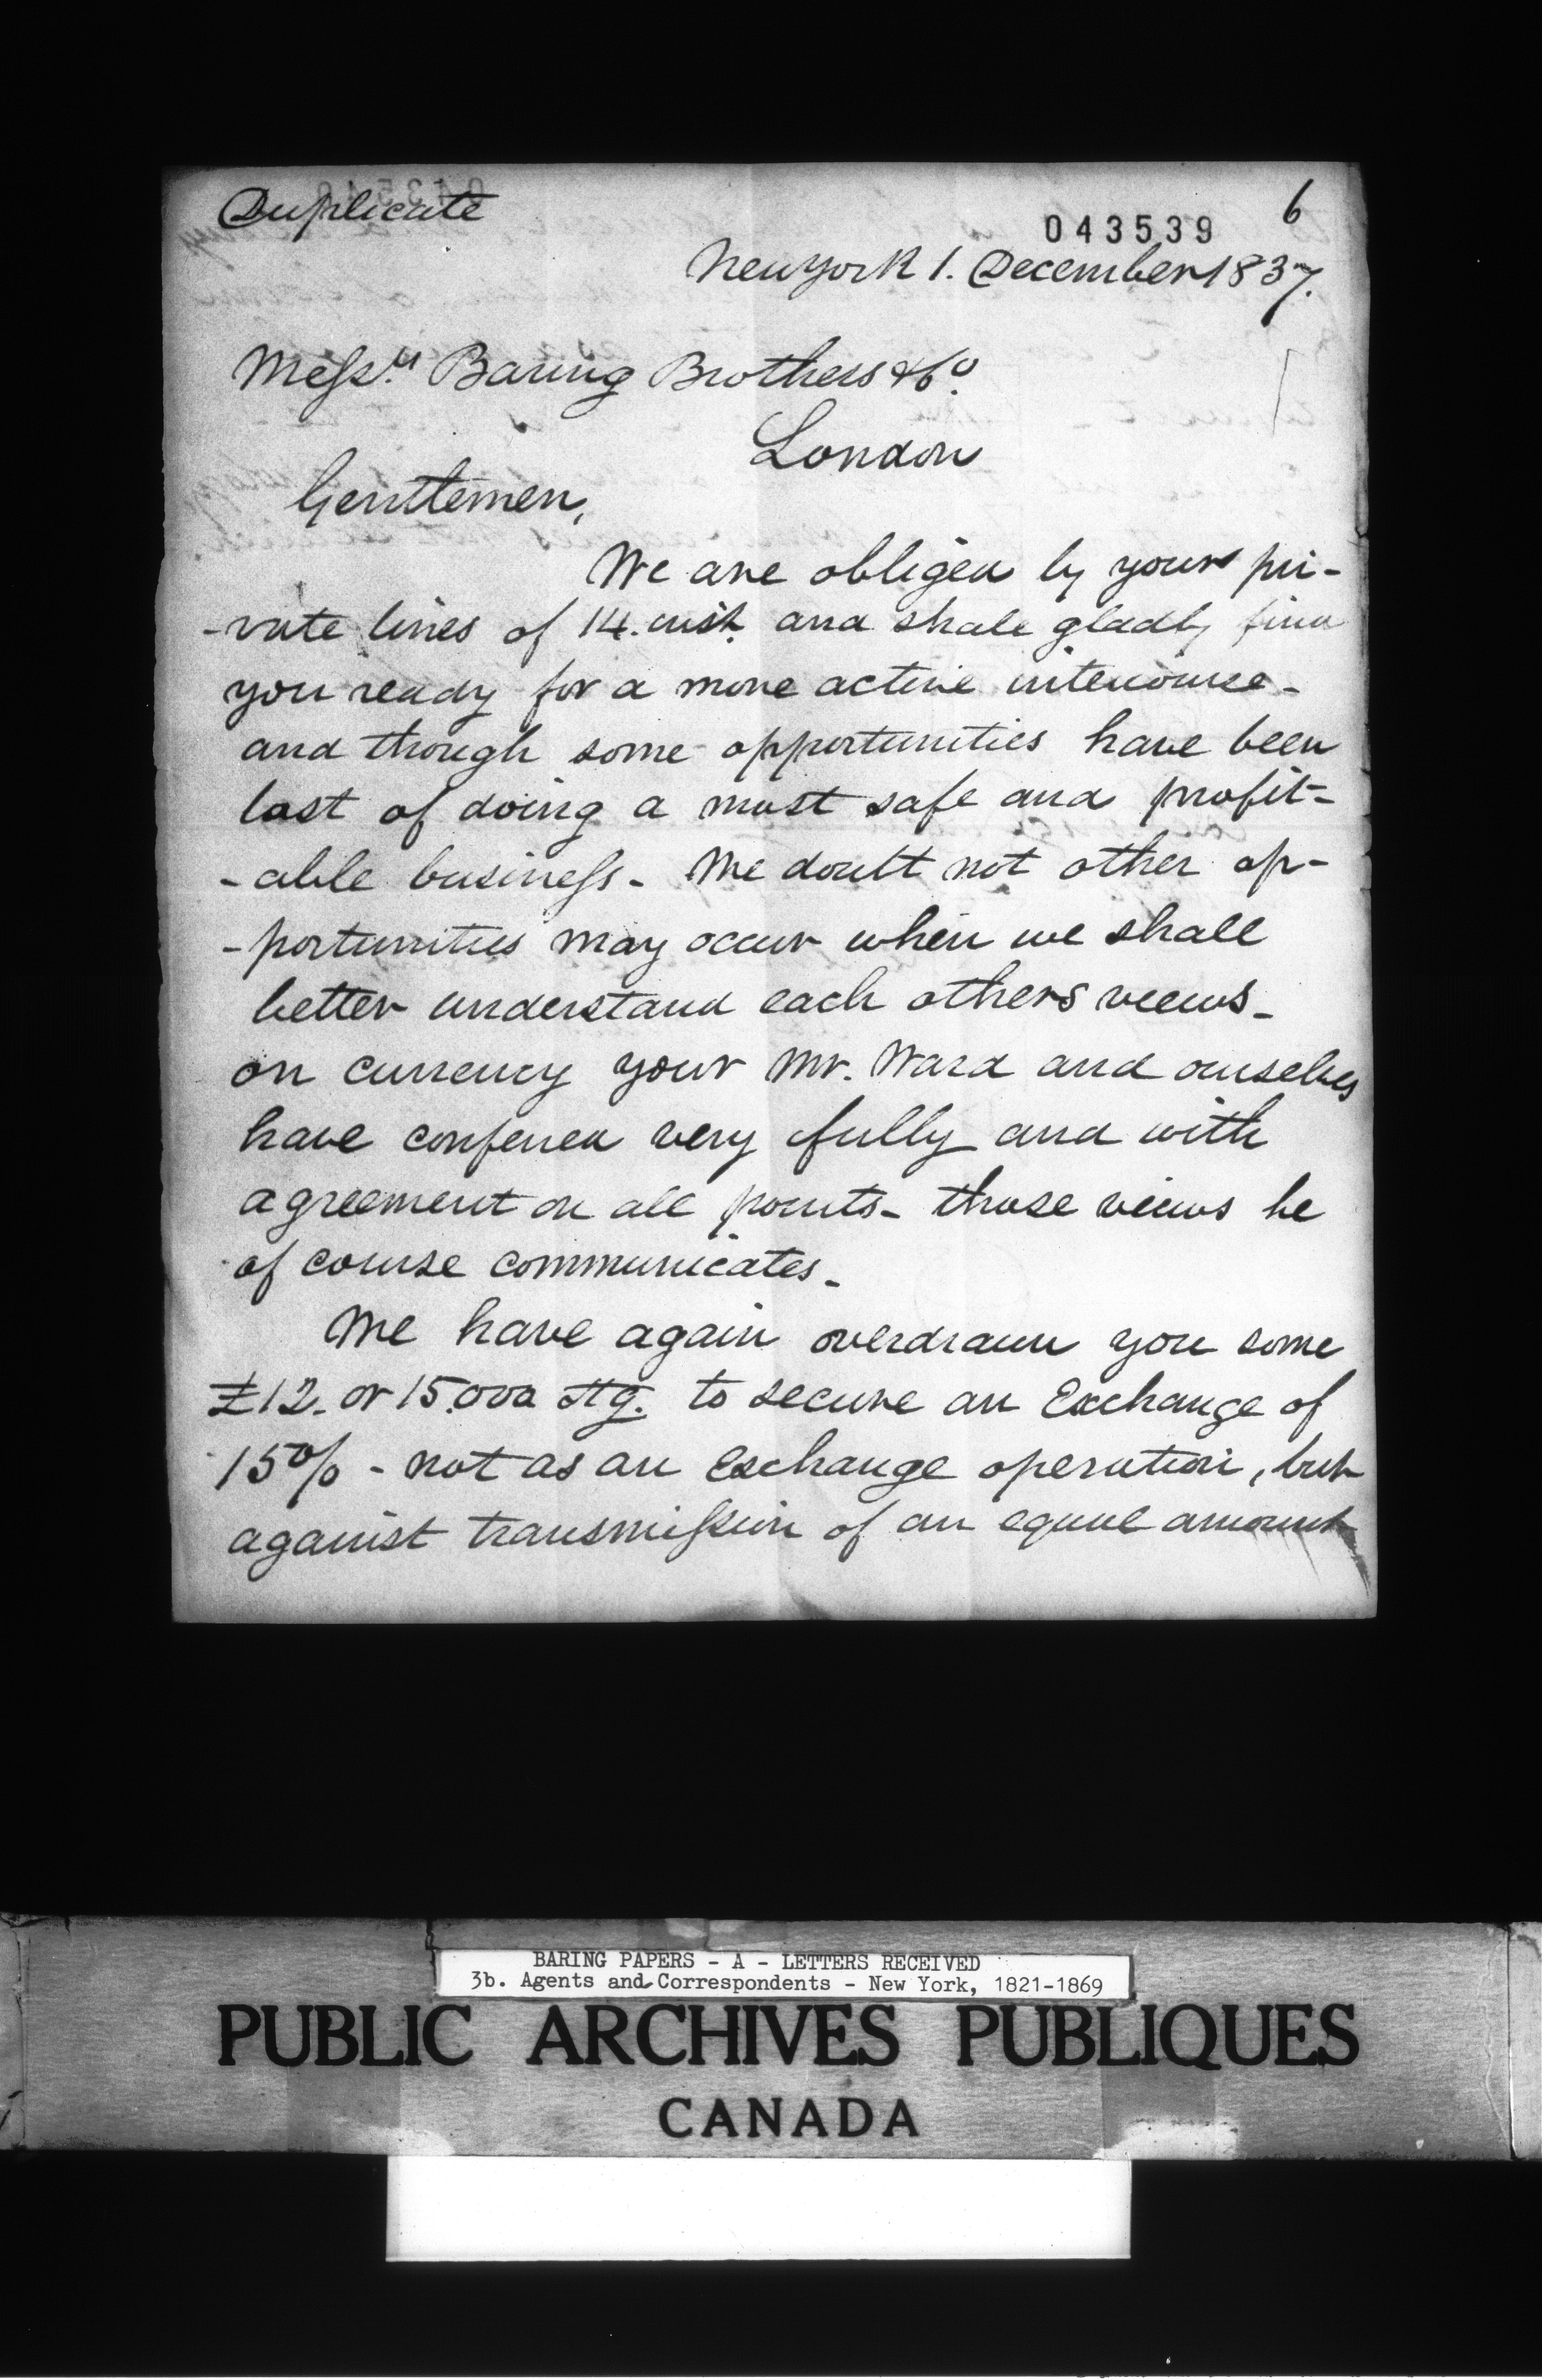 Duplicate
6
043539
New York 1. December 1837.
Messrs Baring Brothers & Co.
London
Gentlemen,
We are obliged by your pri-
-vate lines of 14. inst. and shall gladly find
you ready for a more active intercourse -
and though some opportunities have been
lost of doing a most safe and profit-
-able business - We doubt not other op-
-portunities may occur when we shall
better understand each others views -
on currency your Mr. Ward and ourselves
have conferred very fully and with
agreement on all points - those views he
of course communicates -
We have again overdrawn you some
£12. or 15.000 Stg. to secure an Exchange of
15% - not as an Exchange operation, but
against transmission of an equal amount
BARING PAPERS - A - LETTERS RECEIVED
3b. Agents and Correspondents - New York, 1821-1869
PUBLIC ARCHIVES PUBLIQUES
CANADA